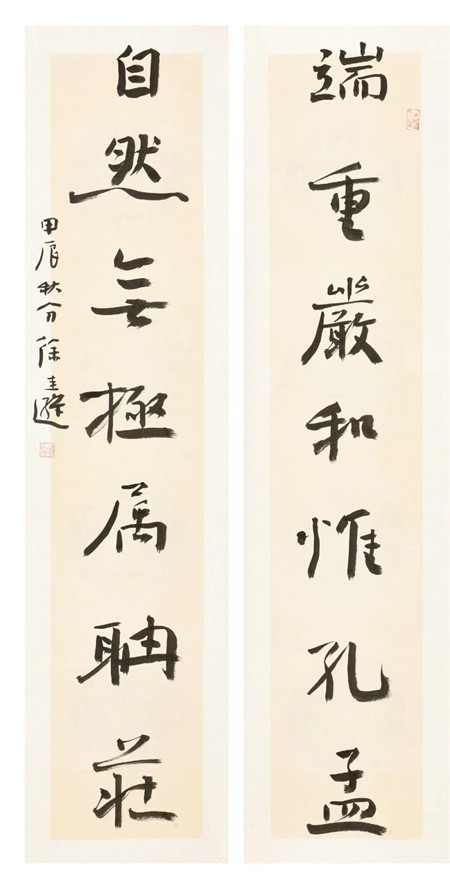 端重嚴和惟孔孟
自然無極属聃莊
甲辰秋分徐圭遜